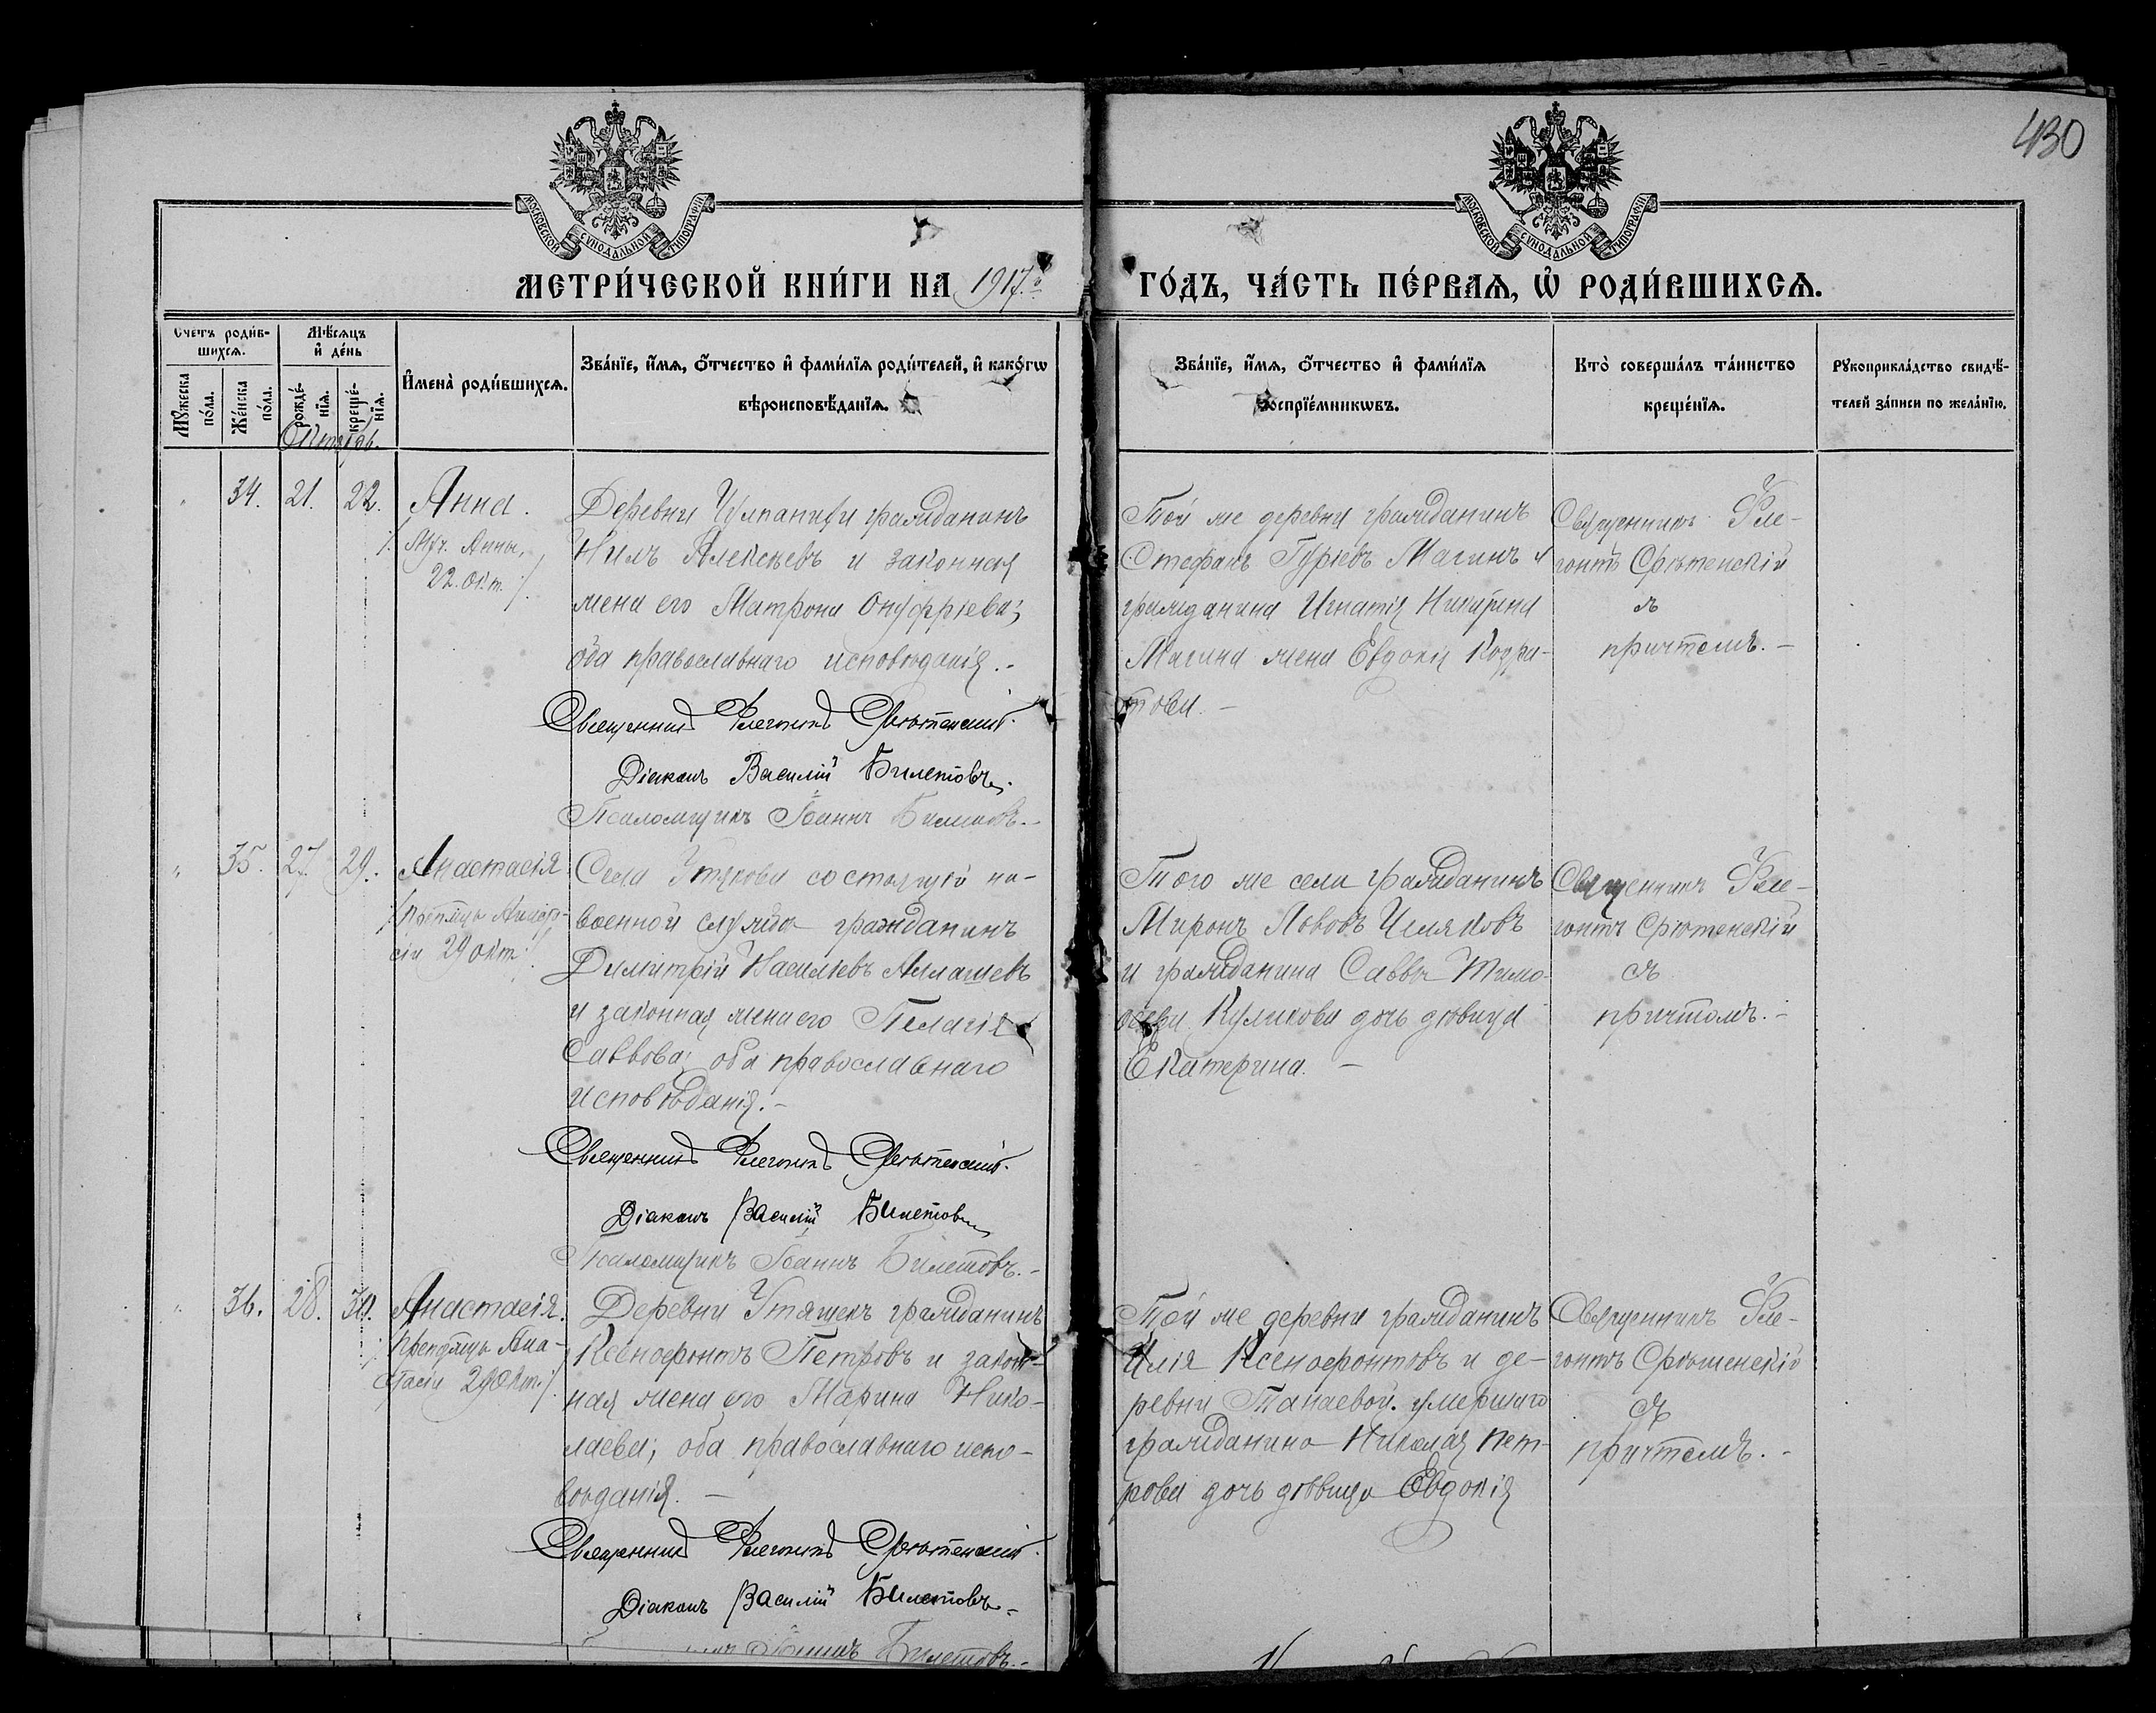 430
МОСКОВСКОЙ СѴНОДАЛЬНОЙ ТИПОГРАФІИ
МОСКОВСКОЙ СѴНОДАЛЬНОЙ ТИПОГРАФІИ
МЕТРИ́ЧЕСКОЙ КНИ́ГИ НА 1917.й ГО́ДЪ, ЧА́СТЬ ПЕ́РВАѦ, Ѡ҆ РОДИ́ВШИХСѦ.
Сче́тъ роди́в-
шихсѧ.
Мꙋ́жеска
по́ла.
Же́нска
по́ла.
Мѣ́сѧцъ
и҆ де́нь
рожде́-
нїѧ.
креще́-
нїѧ.
И҆мена̀ роди́вшихсѧ.
Зва́нїе, и҆́мѧ, ѻ҆́тчество и҆ фами́лїѧ роди́телей, и҆ како́гѡ
вѣроисповѣ́данїѧ.
Зва́нїе, и҆́мѧ, ѻ҆́тчество и҆ фами́лїѧ
воспрїе́мникѡвъ.
Кто̀ соверша́лъ та́инство
креще́нїѧ.
Рꙋкоприкла́дство свидѣ́-
телей за́писи по жела́нїю.
Октябь.
34. 21. 22. Анна.
/: Муч. Анны,
22. окт. :/
Деревни гражданинъ
Нилъ Алексѣевъ и законная
жена его Матрона Онуфріева;
оба православнаго исповѣданія.-
Священникъ Флегонтъ Срѣтенскій.
Діаконъ Василій Билетовъ.
Псаломщикъ Іоаннъ Билетовъ.-
Той же деревни гражданинъ
Стефанъ Гуріевъ Магинъ и
гражданина Игнатія Никитина
Магина жена Евдокія Кодра-
това.-
Священникъ Фле-
гонтъ Срѣтенскій
съ
причтомъ.-
35. 27. 29. Анастасія
/: Препмцы Анаста-
сіи 29 окт. :/
Села Утякова состоящій на-
военной службѣ гражданинъ
Димитрій Васильевъ
и законная жена его Пелагія
Саввова; оба православнаго
исповѣданія.-
Священникъ Флегонтъ Срѣтенскій.
Діаконъ Василій Билетовъ
Псаломщикъ Іоаннъ Билетовъ.-
Того же села гражданинъ
Миронъ Львовъ
и гражданина Саввы Тимо-
ѳеева Куликова дочь дѣвица
Екатерина.-
Священникъ Фле-
гонтъ Срѣтенскій
съ
причтомъ.-
36. 28. 30. Анастасія.
/: Препдмцы Ана-
стасіи 29 окт. :/
Деревни Утяшекъ гражданинъ
Ксенофонтъ Петровъ и закон-
ная жена его Марина Нико-
лаева; оба православнаго испо-
вѣданія.-
Священникъ Флегонтъ Срѣтенскій.
Діаконъ Василій Билетовъ.-
Іоаннъ Билетовъ.-
Той же деревни гражданинъ
Илія Ксенофонтовъ и де-
ревни Танаевой умершаго
гражданина Николая Пет-
рова дочь дѣвица Евдокія
Священникъ Фле-
гонтъ Срѣтенскій
съ
причтомъ.-